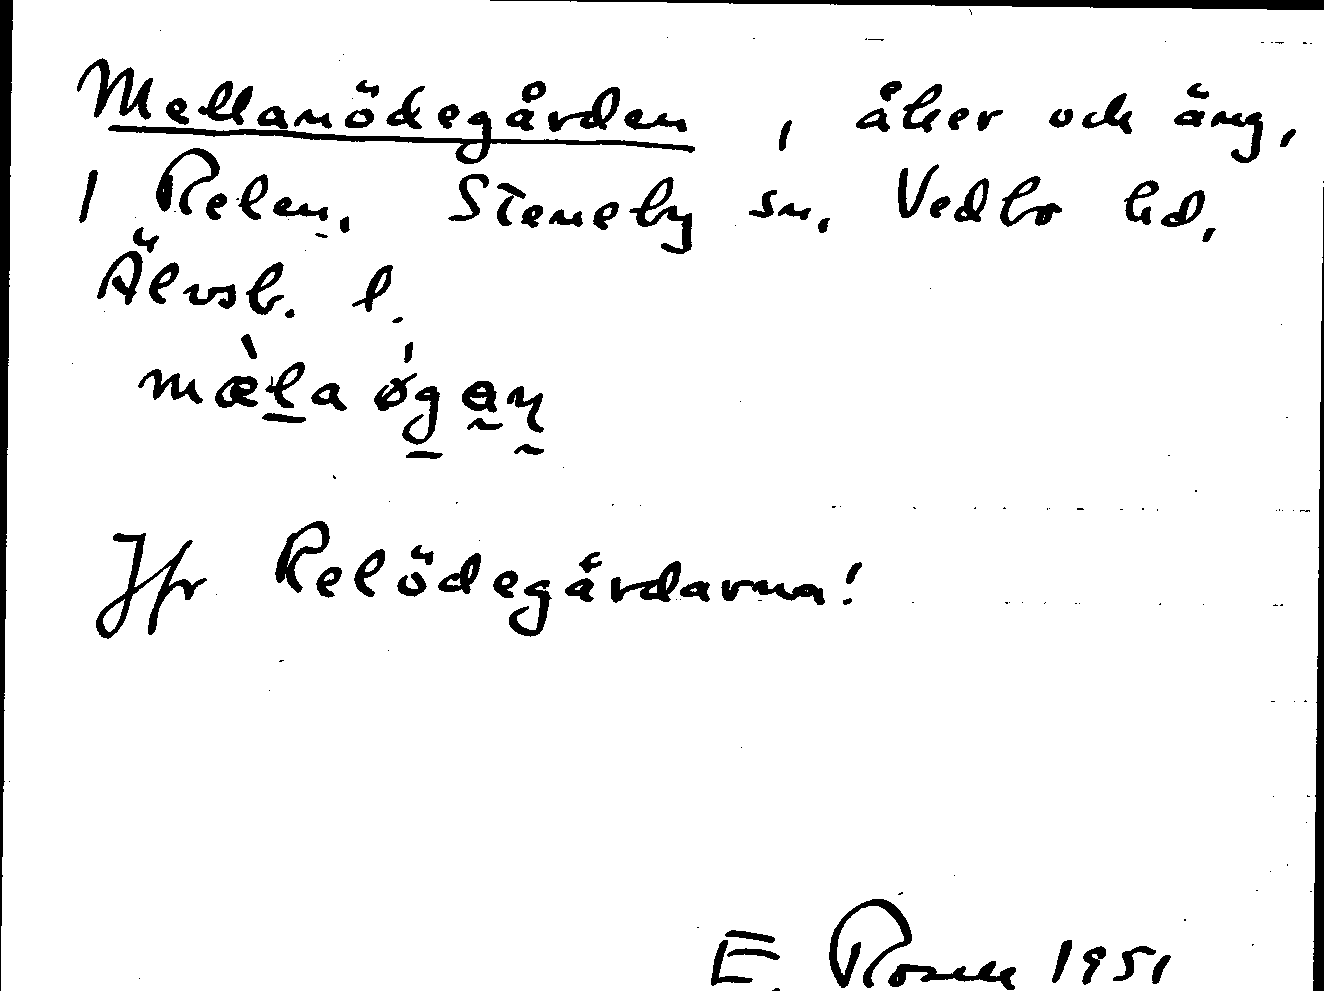 Mellanödegården, åker och äng,
1 Relen. Steneby sn. Vedbo hd,
Älvsb. l.
mæ̀la ǿgan
Jfr Relödegårdarna!
E. Rosell 1951